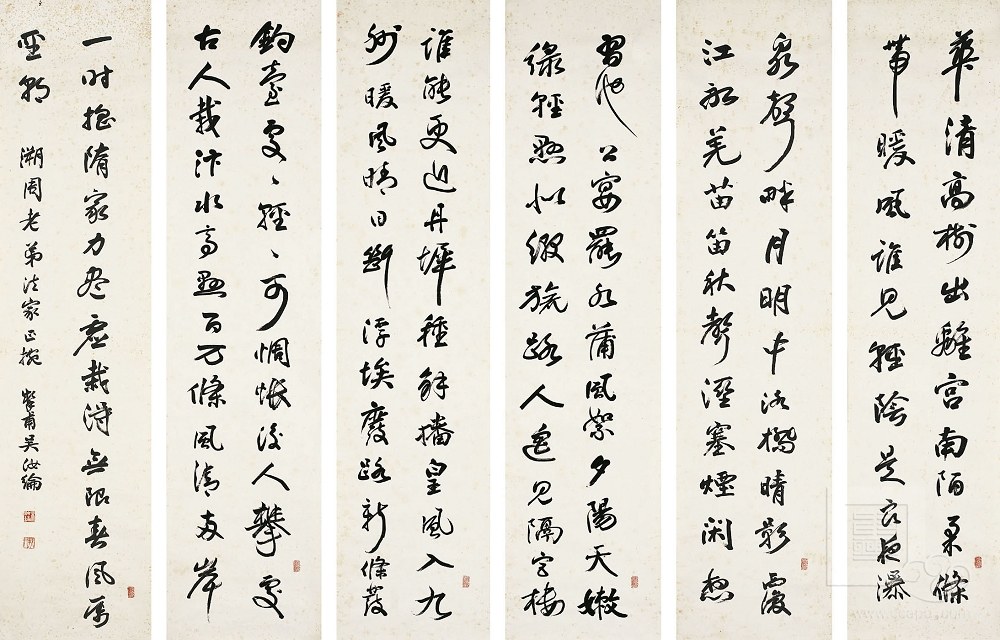 華清高樹出離宮南陌柔條
帶暖風誰見輕陰是良夜瀑
泉聲畔月明中洛橋晴影覆
江船羌苗笛秋聲溼塞煙閑想
習池公宴罷水蒲風絮夕陽天嫩
綠輕懸似綴旒路人遙見隔宮樓
誰能更近丹墀種解播皇風入九
州暖風晴日斷浮埃廢路新條發
釣臺處〻輕〻可惆悵後人攀處
古人栽汴水高懸百万條風清兩岸
一時搖隋家力盡虛栽得無限春風屬
聖朝 溯周老弟法家正捥 摯甫吳汝綸